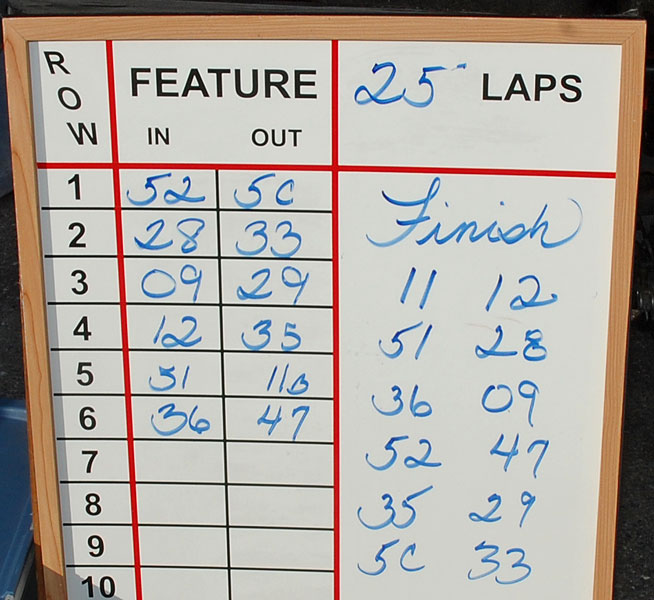 ROW FEATURE 25 LAPS
IN OUT
1 52 5C
2 28 33
3 09 29
4 12 35
5 51 11b
6 36 47
7
8
9
10
Finish
11 12
51 28
36 09
52 47
35 29
5C 33